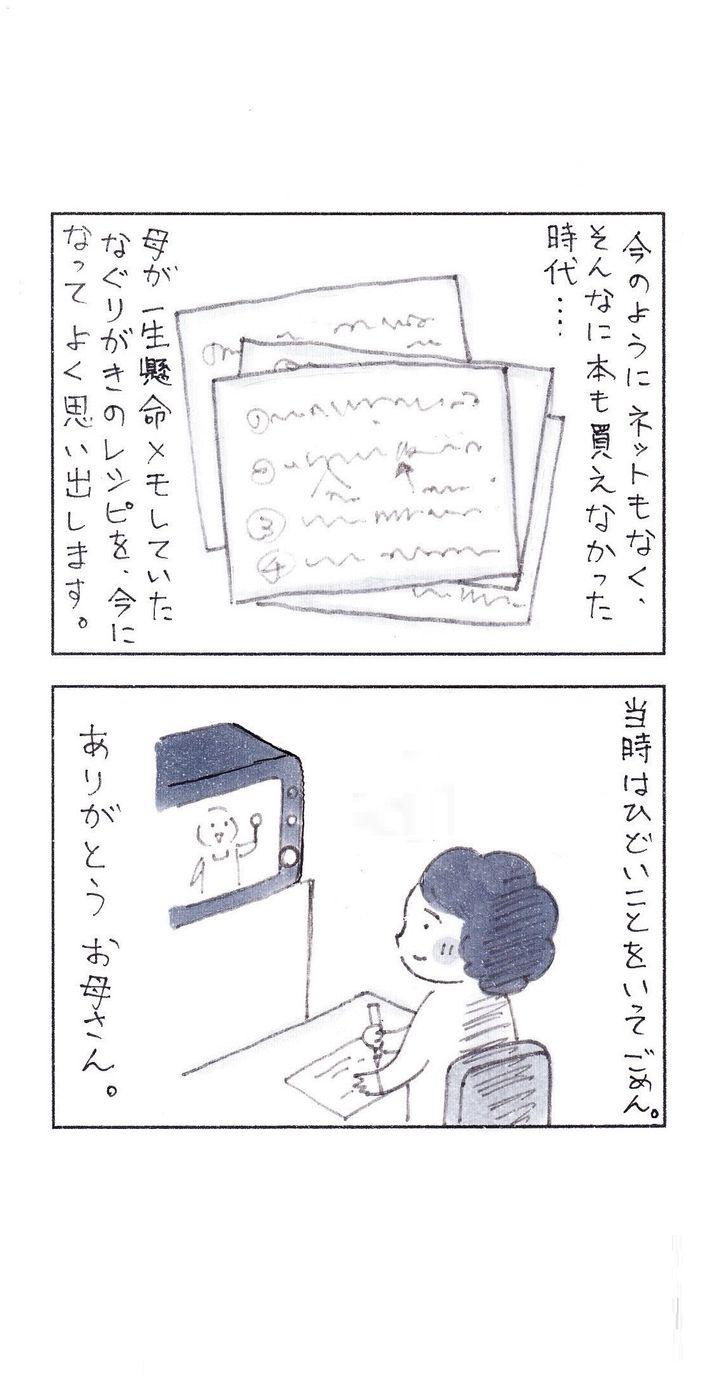 今のようにネットもなく、
そんなに本も買えなかった
時代…
母が一生懸命メモしていた
なぐりがきのレシピを、今に
なってよく思い出します。
①
②
③
④
当時はひどいことをいってごめん。
ありがとうお母さん。